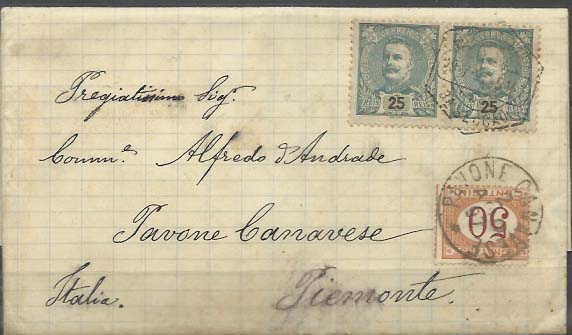 25
25
Pregiatissimo Sig.
Comm.e Alfredo d'Andrade
PAVONE CANAVESE
50
Pavone Canavese
Italia. Piemonte.